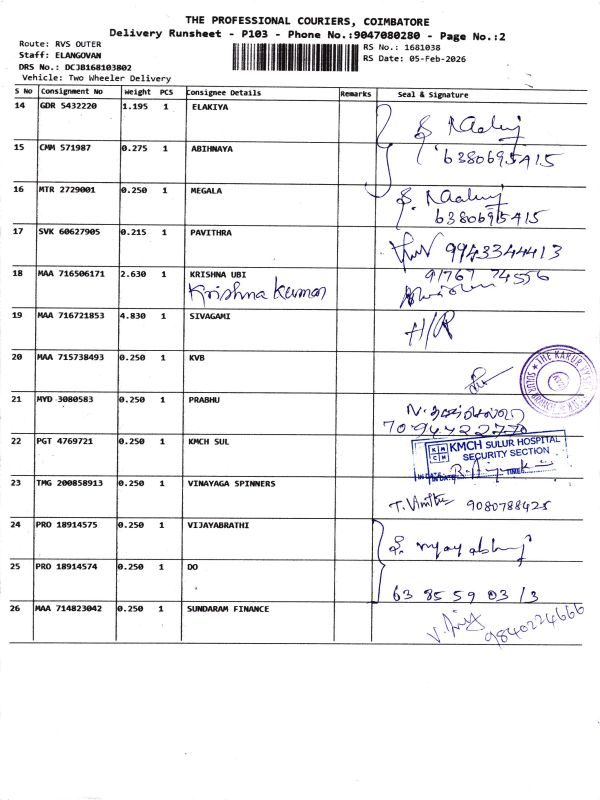 THE PROFESSIONAL COURIERS, COIMBATORE
Delivery Runsheet - P103 - Phone No.:9047080280 - Page No.:2
Route: RVS OUTER
Staff: ELANGOVAN
DRS No.: DCJB168103802
Vehicle: Two Wheeler Delivery
RS No.: 1681038
RS Date: 05-Feb-2026
S No Consignment No Weight PCS Consignee Details Remarks Seal & Signature
14 GDR 5432220 1.195 1 ELAKIYA
15 CMM 571987 0.275 1 ABIHNAYA 6380695415
16 MTR 2729001 0.250 1 MEGALA
6380695415
17 SVK 60627905 0.215 1 PAVITHRA 9943344413
18 MAA 716506171 2.630 1 KRISHNA UBI 91767 74556
Krishna Kumar
19 MAA 716721853 4.830 1 SIVAGAMI H/R
20 MAA 715738493 0.250 1 KVB
THE KARUR VYSYA
SULUR
21 MYD 3080583 0.250 1 PRABHU
22 PGT 4769721 0.250 1 KMCH SUL
KMCH SULUR HOSPITAL
SECURITY SECTION
TIME
23 TMG 200858913 0.250 1 VINAYAGA SPINNERS
9080788425
24 PRO 18914575 0.250 1 VIJAYABRATHI
25 PRO 18914574 0.250 1 DO
63 85 59 03 13
26 MAA 714823042 0.250 1 SUNDARAM FINANCE
9840224666